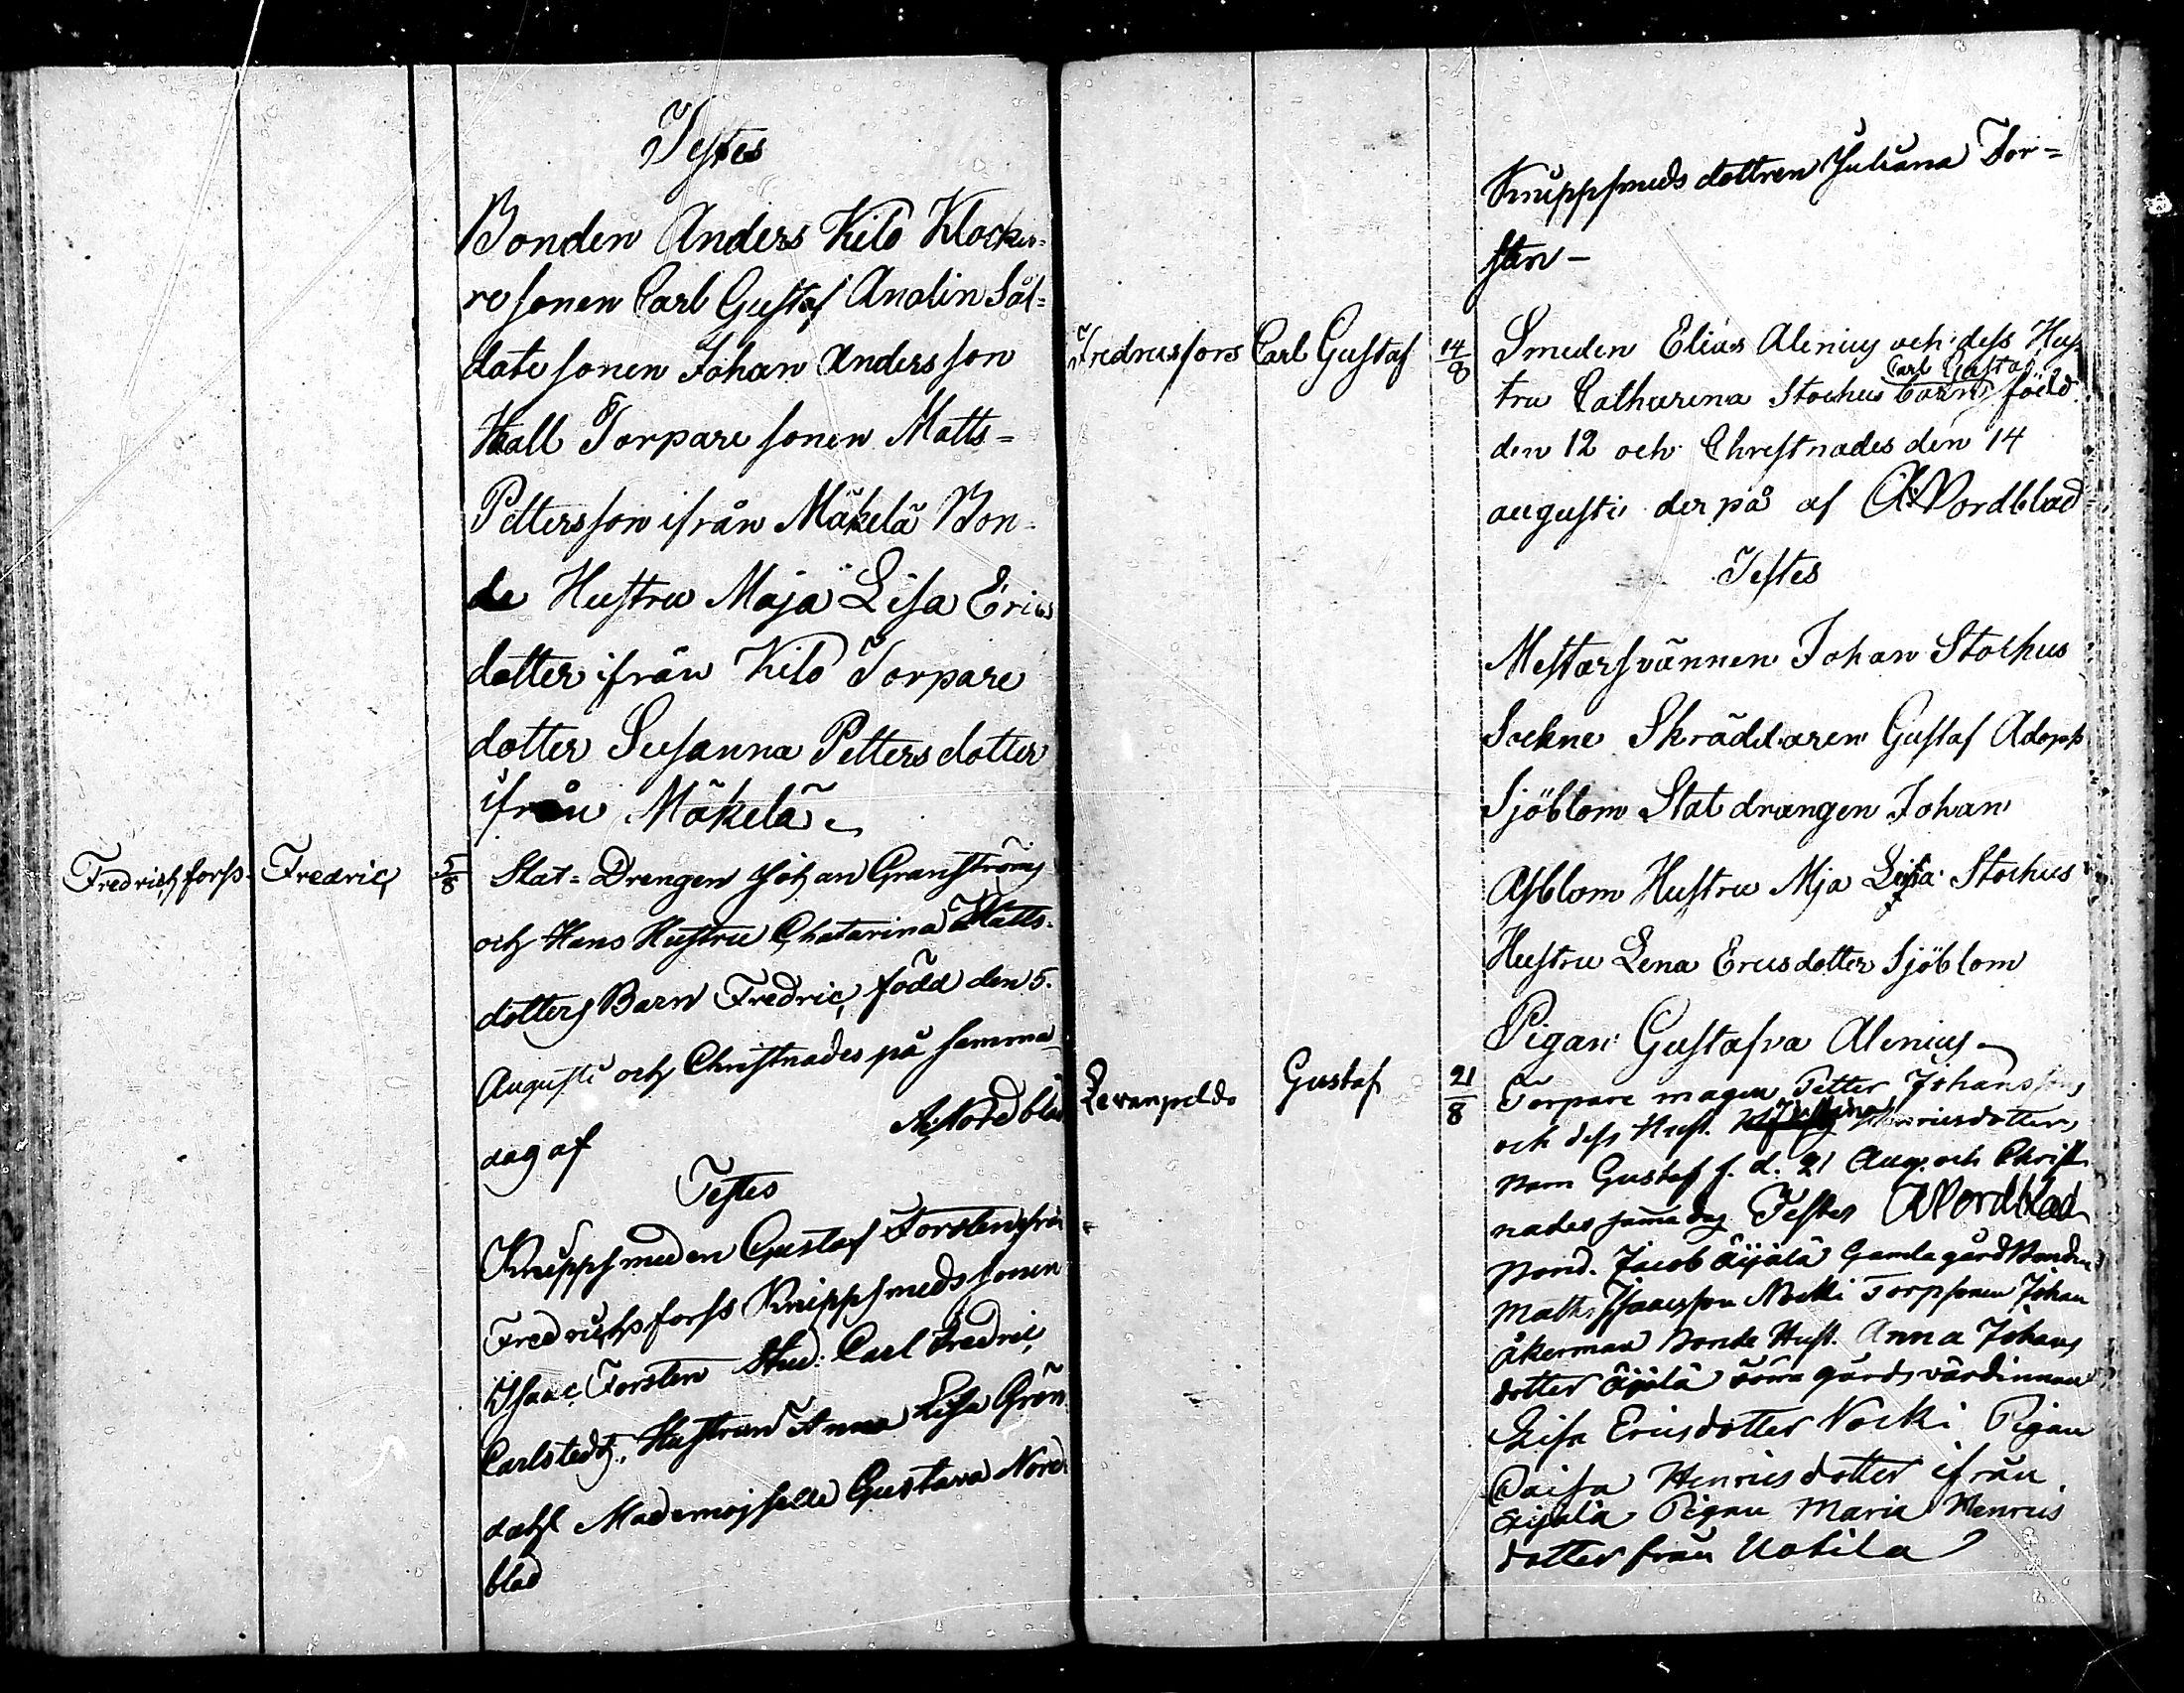 Testes
Bonden Anders Kilo Klocka-
re sonen Carl Gustaf Analin Sål-
date sonen Johan Andersson
Kall Torpare sonen Matts=
Pettersson ifrån Mäkelä Bon-
de Hustru Maja Lisa Erics
dotter ifrån Kilo Torpare
dotter Susanna Petters dotter
ifrån Mäkelä
Fredrichsforss Fredric 5/8 Stat=Drengen Johan Granströms
och Hans Hustru Chatarina Matts-
dotters Barn Fredric, född den 5.
Augusti och Christnades på samma
dag af A. Nordblad
Testes
Knippsmeden Gustaf Forsten från
Fredrichsforss Knippsmeds sonen
Isaac Forsten Stud: Carl Fredric
Carlstedt, Hustrun Anna Lisa Grön
dahl Mademojselle Gustava Nord
blad
Knuppsmeds dottren Juliana For=
sten –
Fredricsfors Carl Gustaf 14/8 Smeden Elias Alenius och dess Hus
Carl Gustaf
tru Catharina Stockus barn född
den 12 och Christnades den 14
augusti derpå af A Nordblad
Testes
Mestarsvännen Johan Stockus
Sockne Skräddaren Gustaf Adopf
Sjöblom Stat drangen Johan
Asblom Hustru Mja Lisa Stockus
Hustru Lena Ericsdotter Sjöblom
Pigan Gustafva Alenius
Levanpeldo Gustaf 21/8 Torpare magen Petter Johanssons
och dess Hust. Henricsdotters
barn Gustaf f. d. 21 Aug. och Christ
nades samma dag Testes A Nordblad
Bond. Jacob Äijälä Gamla gård Bonden
Math. Isaacsson Nocki Torpsonen Johan
Åkerman Bonde Hust. Anna Johans
dotter Äijälä gårds värdinnan
Lisa Ericsdotter Nocki Pigan
Caisa Henricsdotter ifrån
Äijälä Pigan Maria Henrics
dotter från Uotila